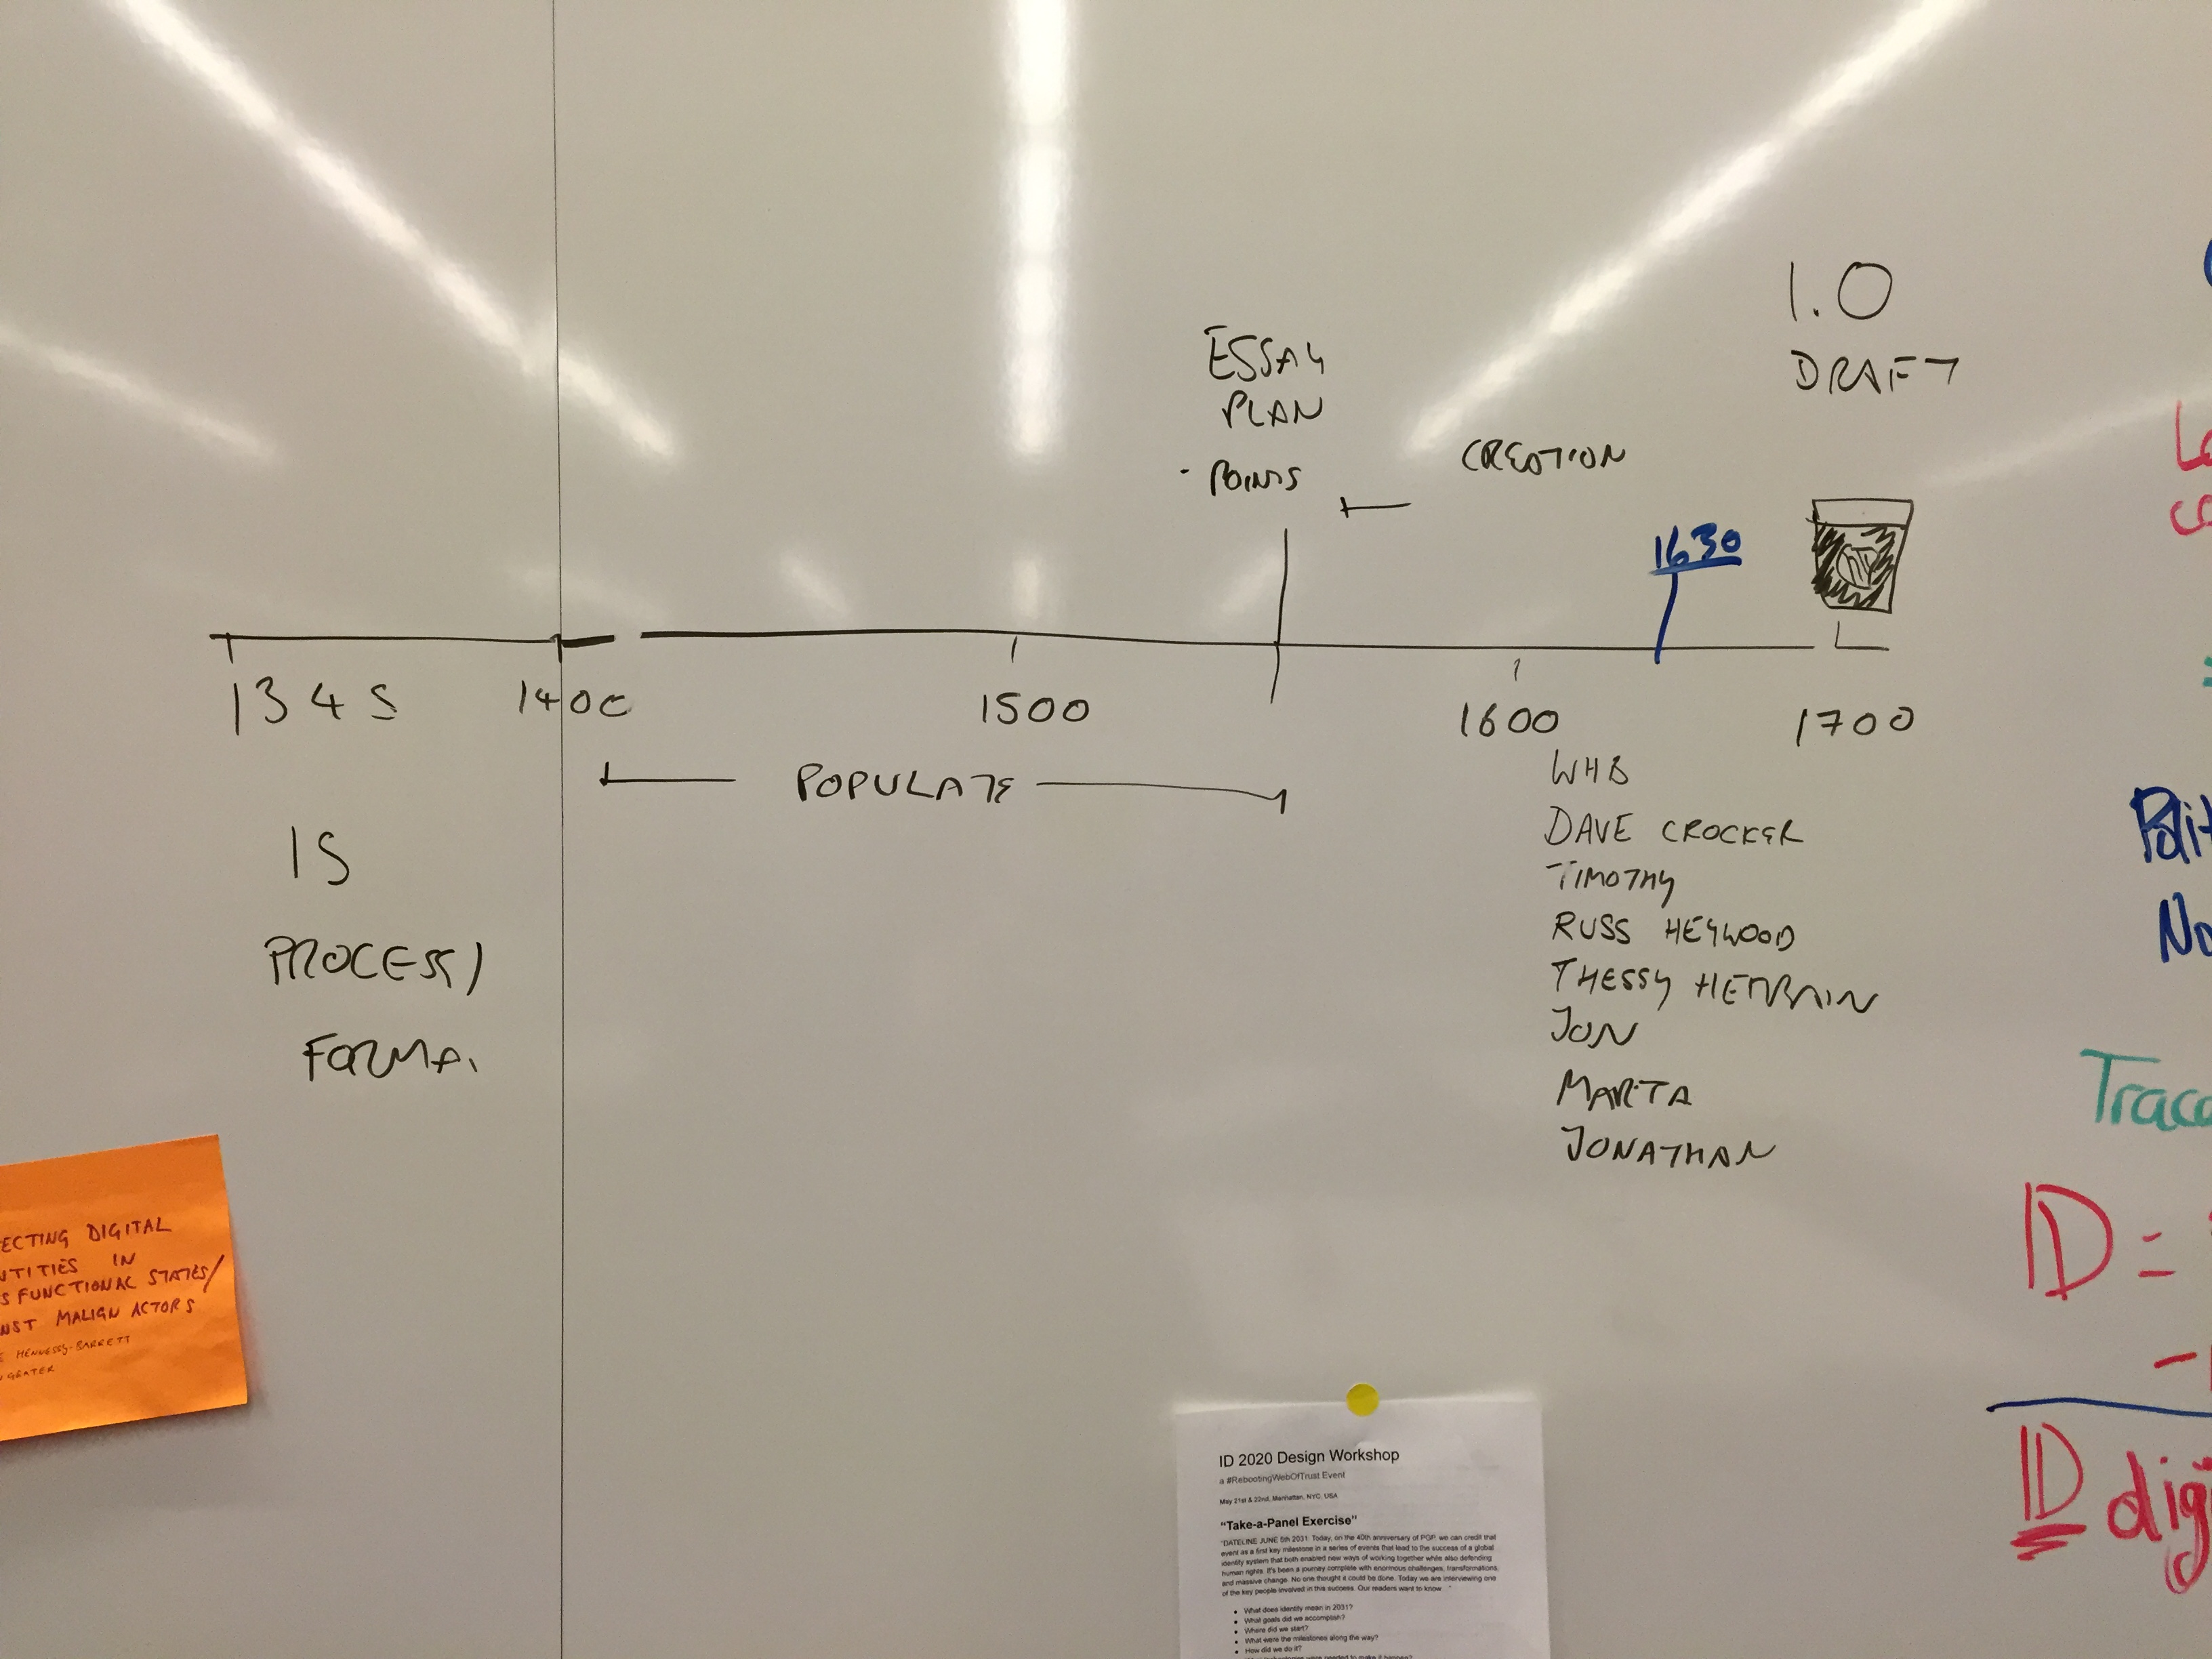 1.0
DRAFT
ESSAY
PLAN
- POINTS
CREATION
1630
1345
1400
1500
1600
1700
POPULATE
IS
PROCESS/
FORMA
WHB
DAVE CROCKER
TIMOTHY
RUSS HEYWOOD
THESSY
JON
MARTA
JONATHAN
Polit
No
Trac
ID =
ID dig
ECTING DIGITAL
NTITIES IN
S FUNCTIONAL STATES/
NST MALIGN ACTORS
E HENNESSY-BARRETT
GEATER
ID 2020 Design Workshop
a #RebootingWebOfTrust Event
May 21st & 22nd, Manhattan, NYC, USA
"Take-a-Panel Exercise"
"DATELINE JUNE 5th 2031: Today, on the 40th anniversary of PGP, we can credit that
event as a first key milestone in a series of events that lead to the success of a global
identity system that both enabled new ways of working together while also defending
human rights. It's been a journey complete with enormous challenges, transformations,
and massive change. No one thought it could be done. Today we are interviewing one
of the key people involved in this success. Our readers want to know "
• What does identity mean in 2031?
• What goals did we accomplish?
• Where did we start?
• What were the milestones along the way?
• How did we do it?